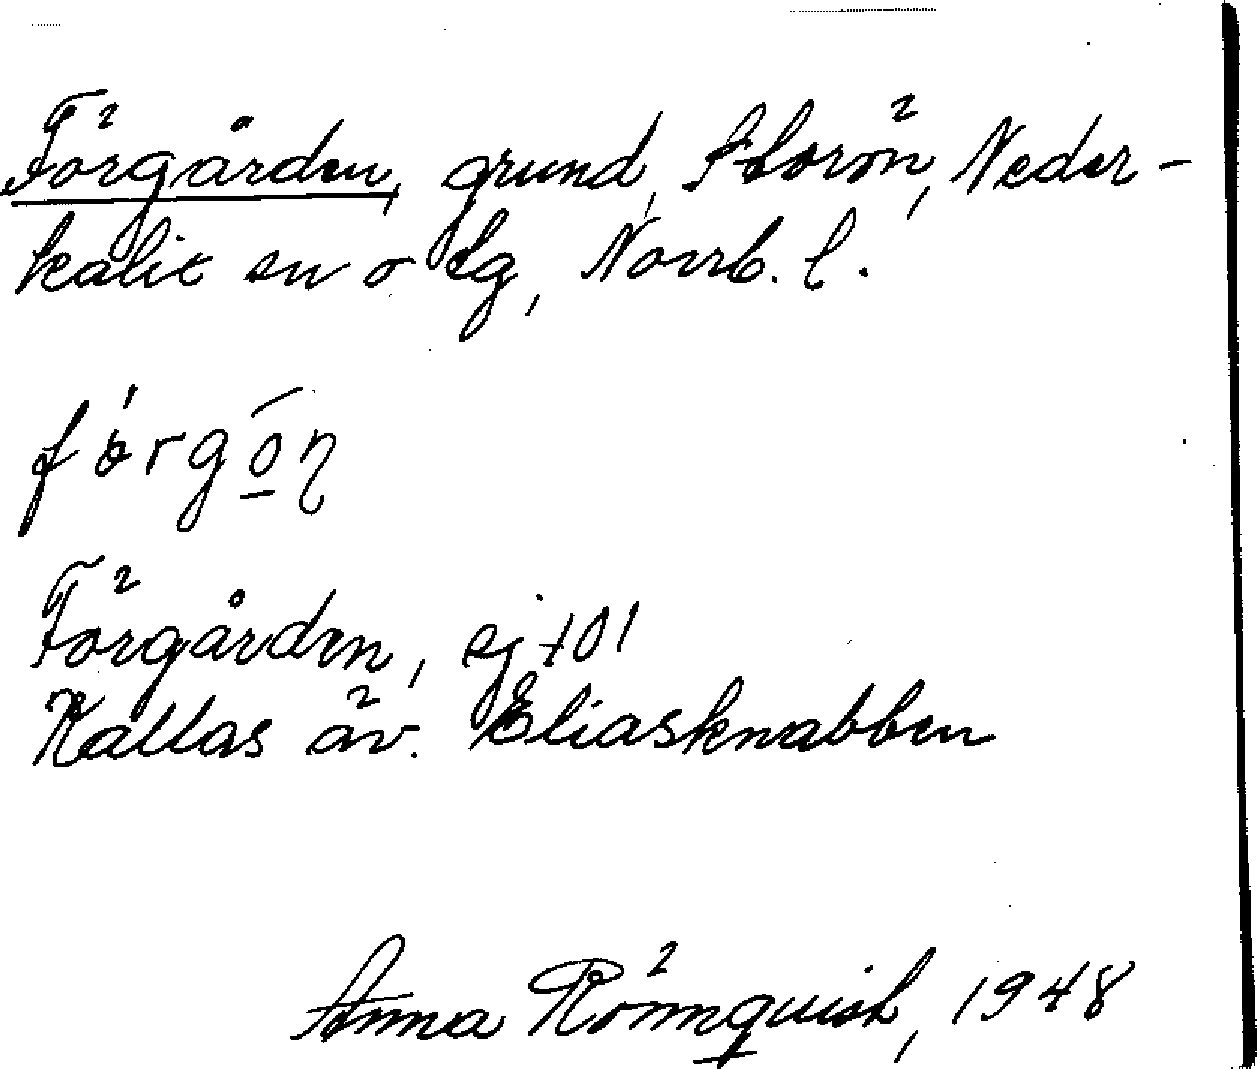 Förgården, grund, Storön, Neder-
kalix sn o tg, Norrb. l.
Förgården, ej
Kallas äv. Eliasknabben
Anna Rönnquist, 1948